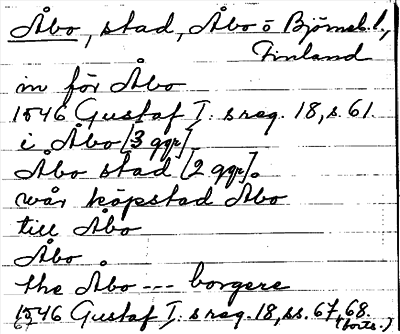 Åbo, stad, Åbo o Björneb. l.,
Finland
in för Åbo
1546 Gustaf I. s reg. 18, s. 61.
i Åbo [3 ggr]
Åbo stad [2 ggr].
wår köpstad Åbo
till Åbo
Åbo
the Åbo --- borgere
1546 Gustaf I. s reg. 18, ss. 67, 68.
67 (forts.)